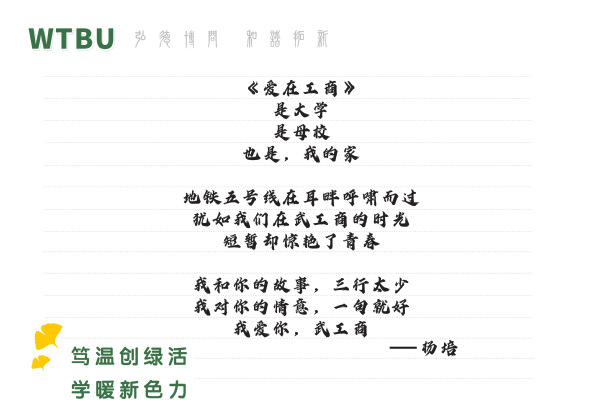 WTBU 弘毅博問 和諧拓新
《爱在工商》
是大学
是母校
也是，我的家
地铁五号线在耳畔呼啸而过
犹如我们在武工商的时光
短暂却惊艳了青春
我和你的故事，三行太少
我对你的情意，一句就好
我爱你，武工商
——杨培
笃温创绿活
学暖新色力